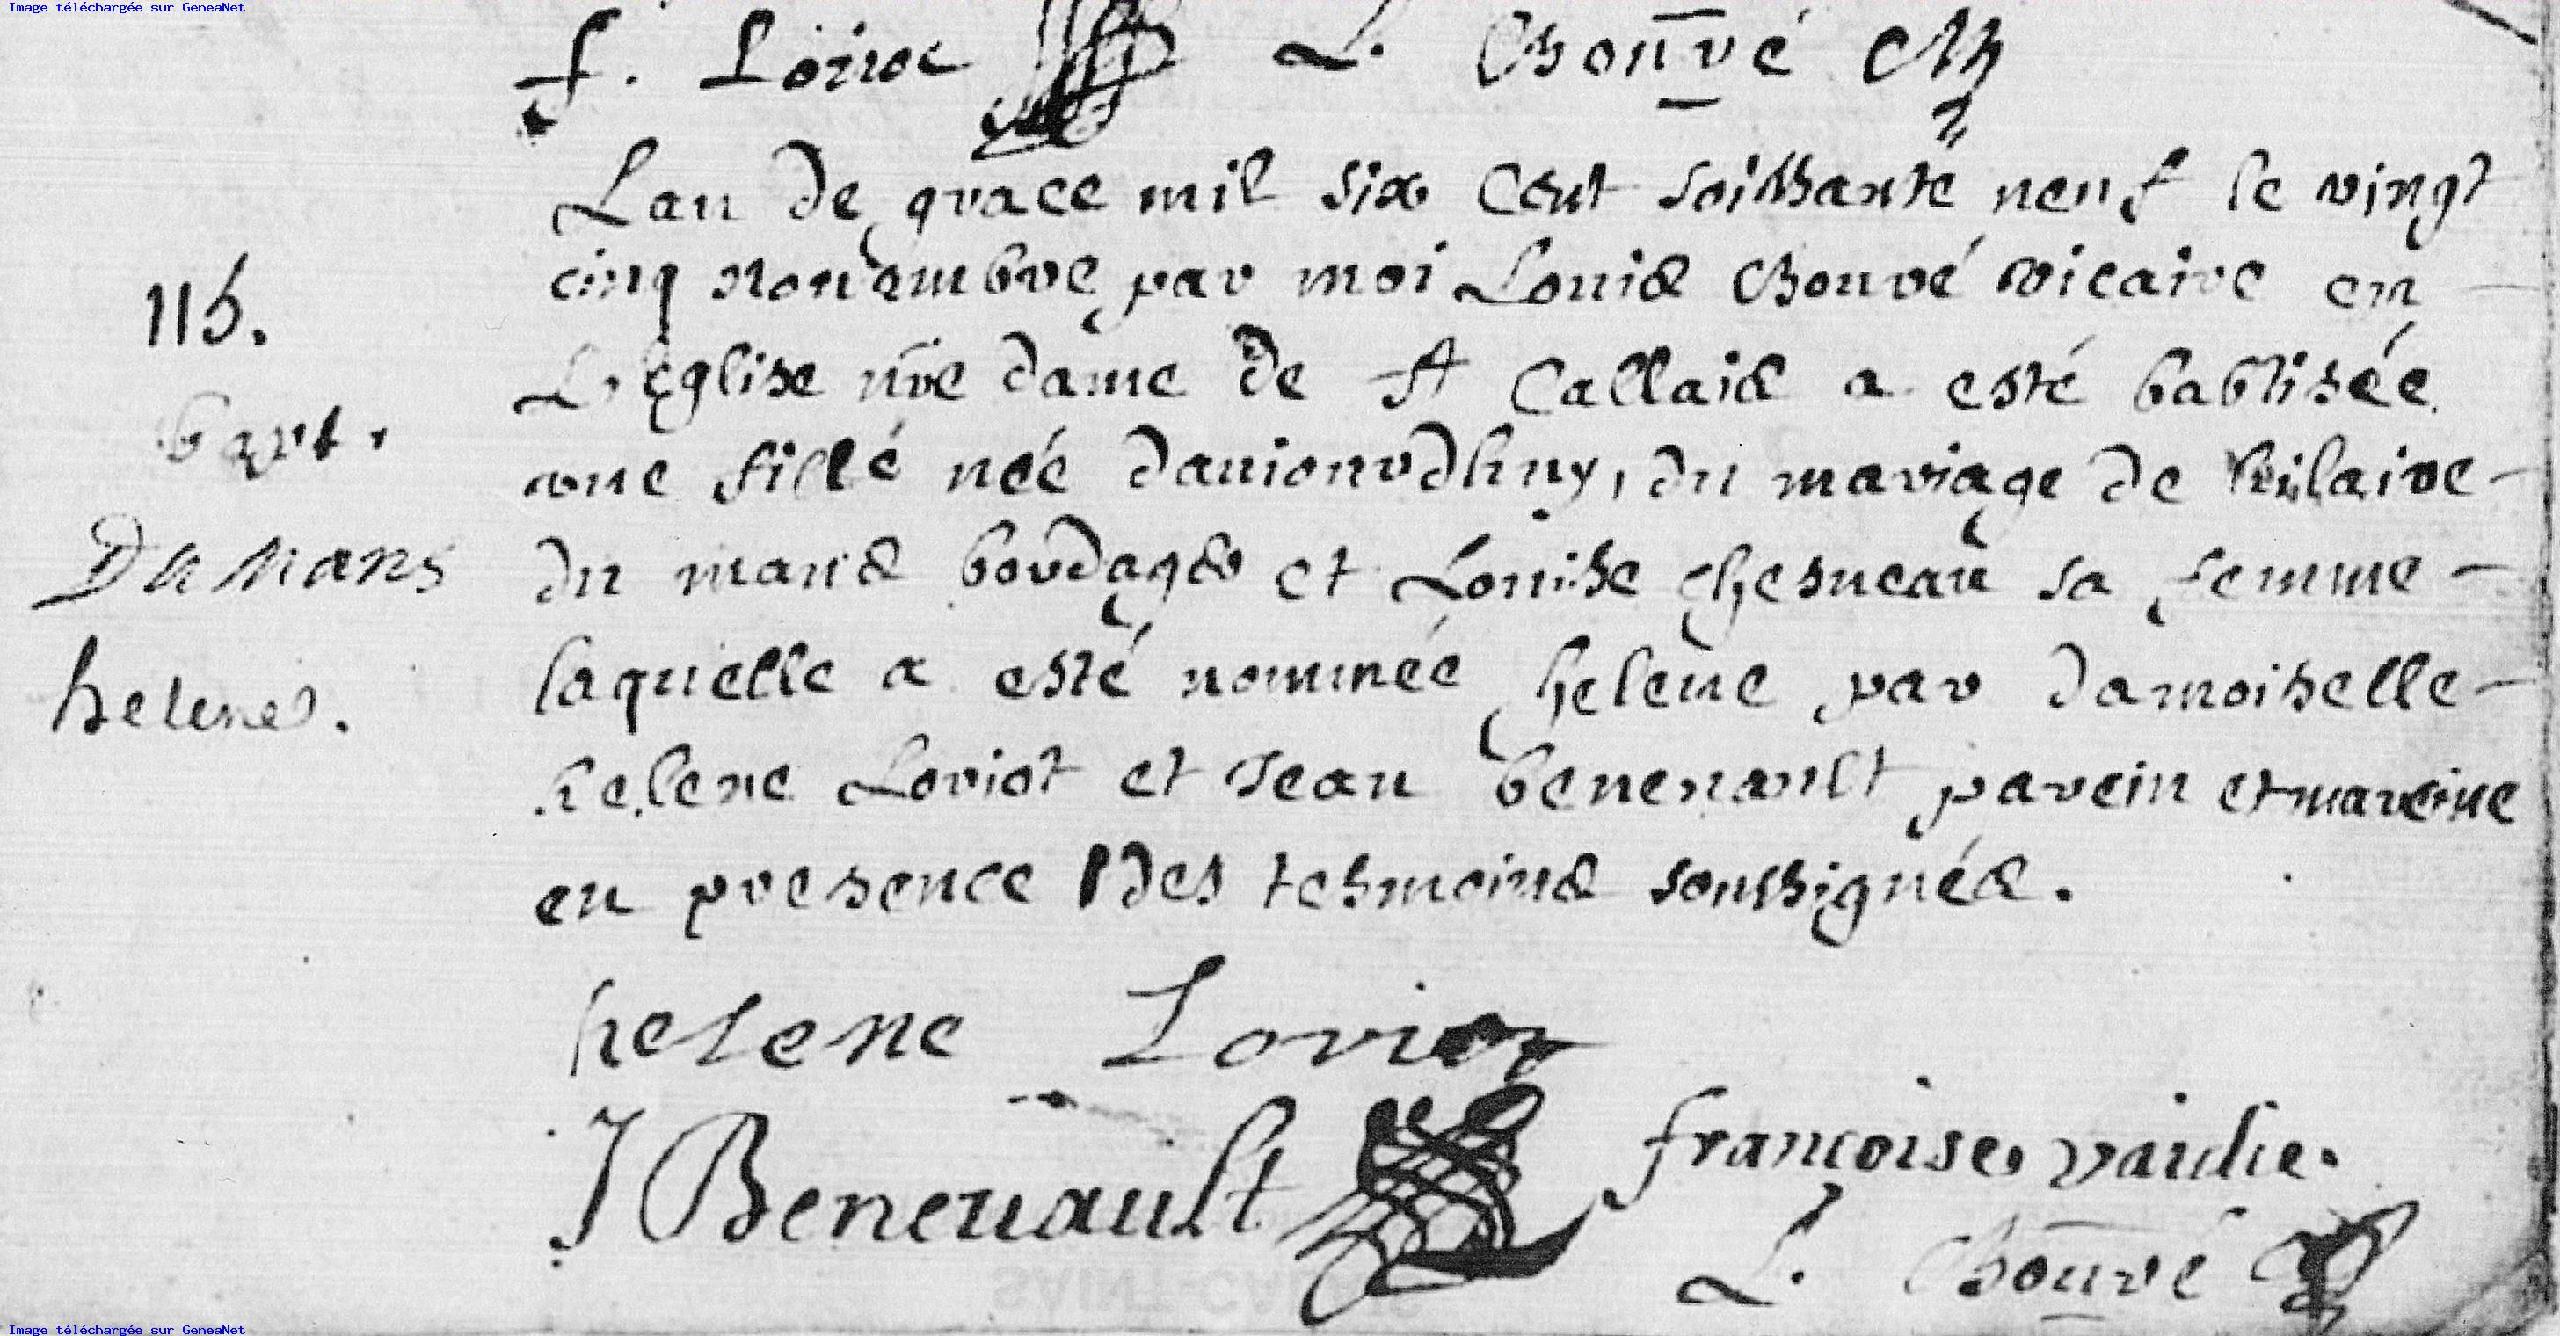 Image téléchargée sur GeneaNet
f. Loiroc L. Chouvé
Lan de grace mil six cent soissante neuf le vingt
cinq nouembre par moi Louis Chouvé vicaire en
L'Eglise nre dame de st Callais a esté babtisée
115.
bapt.
une fille née daujourdhuy, du mariage de hilaire
Du Mans
du mans bordager et Louise chesneau sa femme
helene.
laquelle a esté nommée helene par damoiselle
helene Loriot et Jean benenault parein et mareine
en presence des tesmoins soussignés.
helene Loriot
J Beneuault françoise vaidie.
L. Chouvé
SAINT-CALAIS
Image téléchargée sur GeneaNet